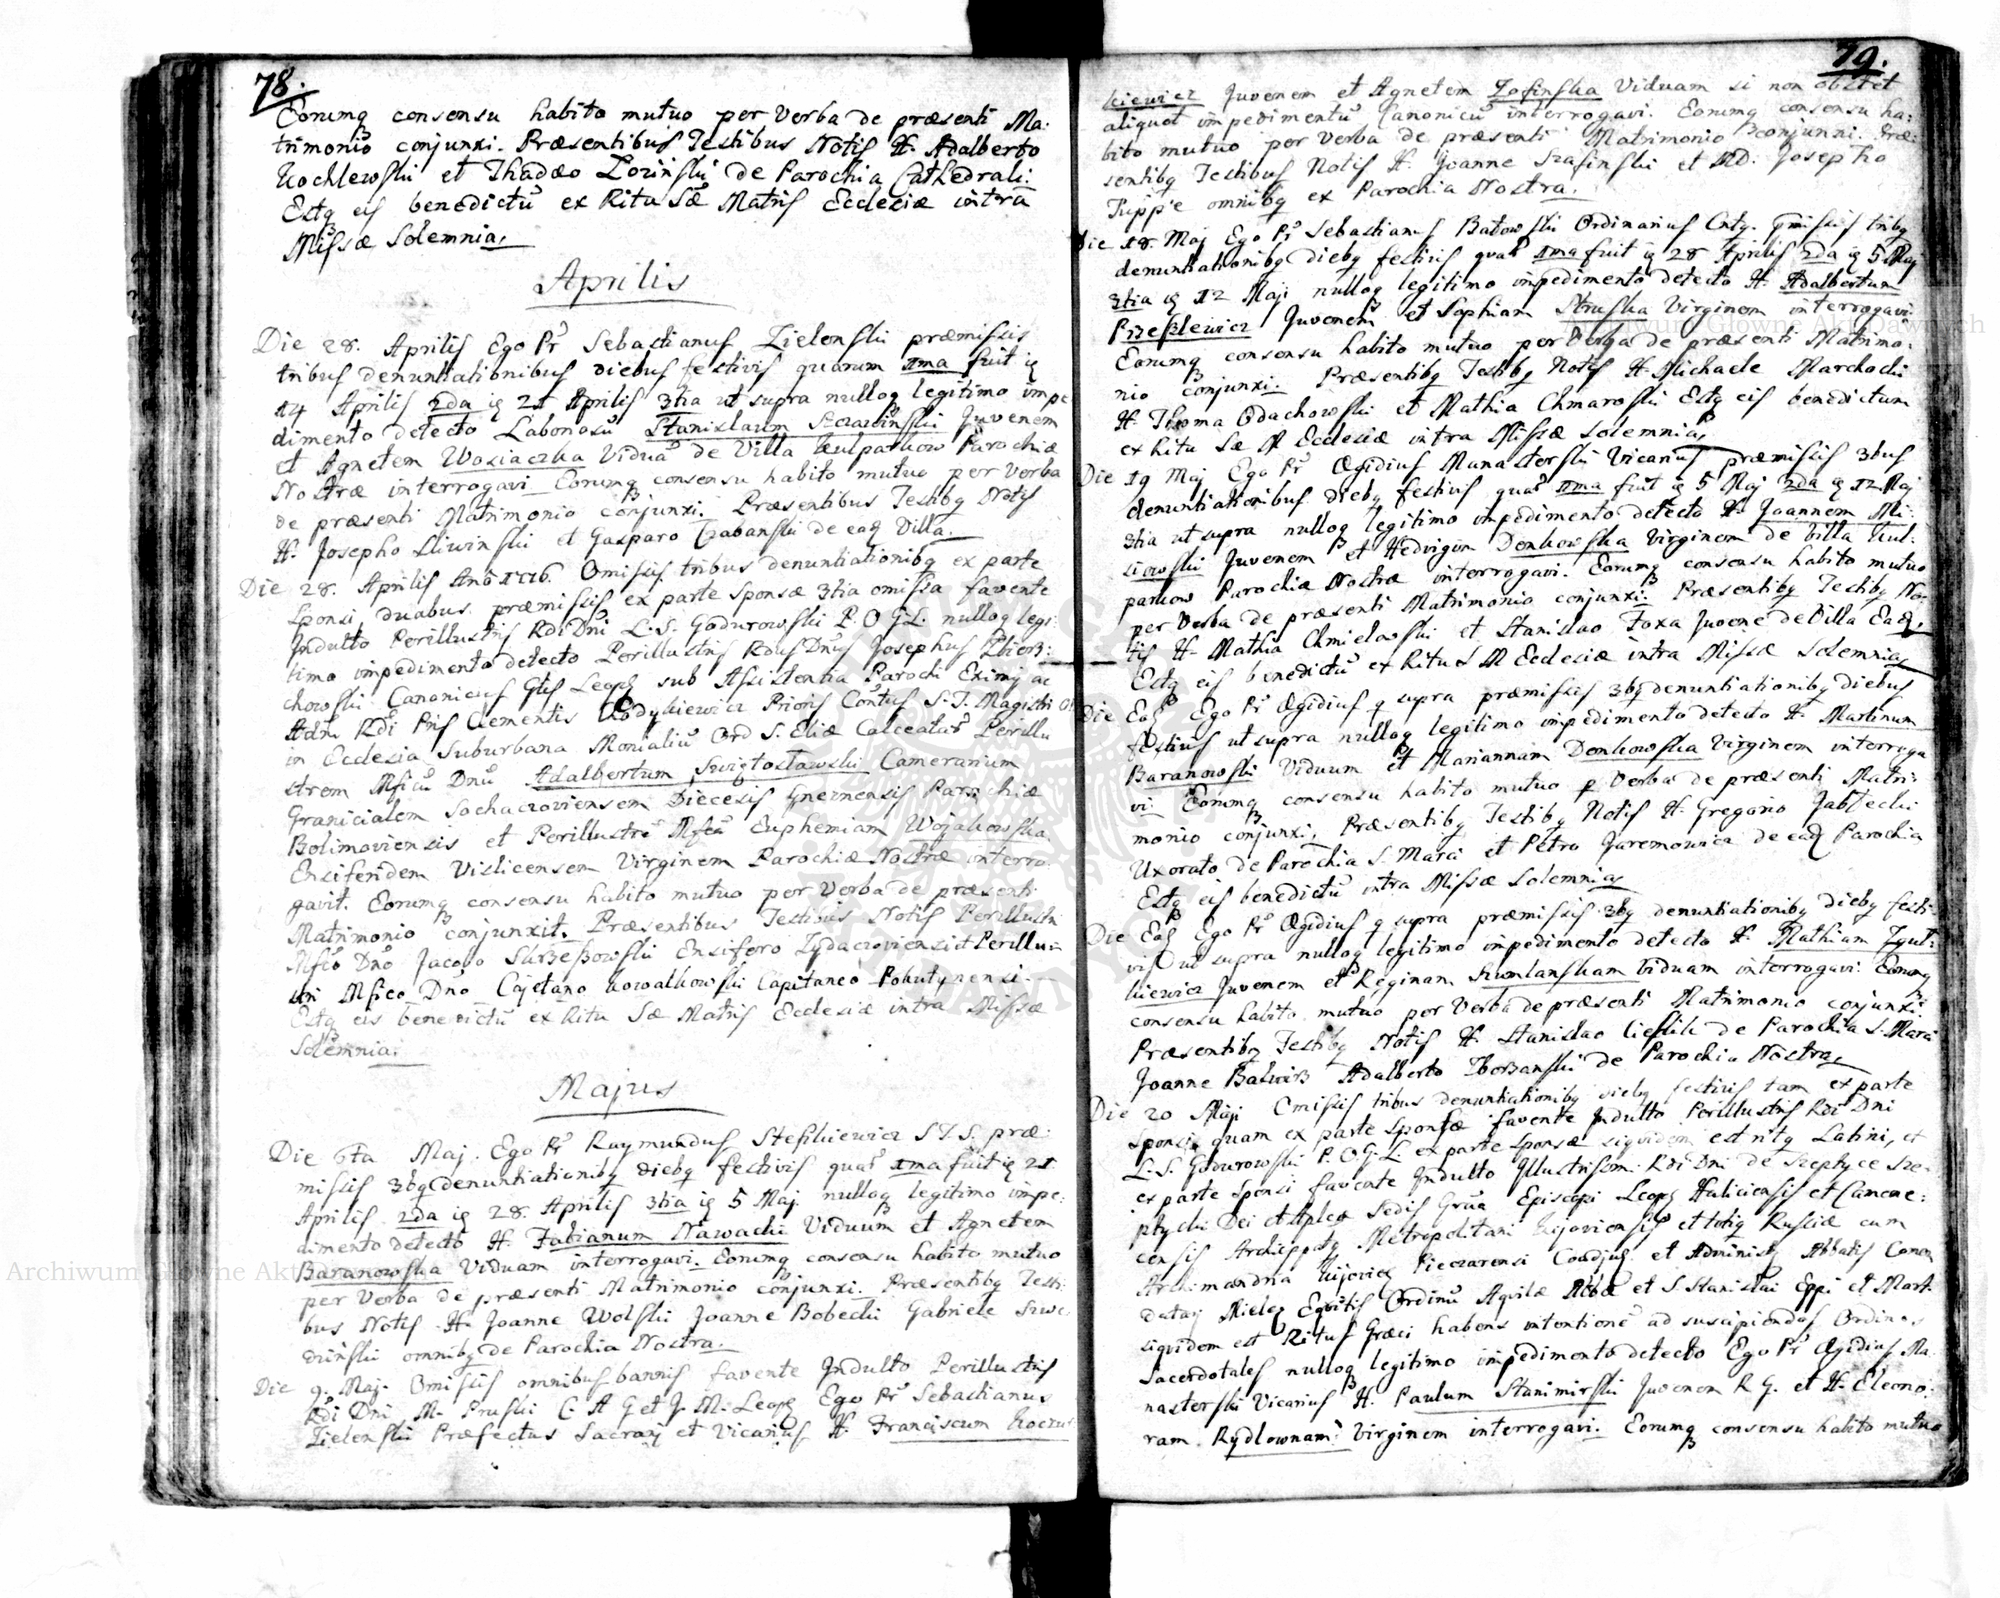 78.
Eorumq consensu habito mutuo per Verba de præsenti Ma:
trimonio conjunxi. Præsentibus Testibus Notis H. Adalberto
Kochlewski et Thadæo Zozinski de Parochia Cathedrali:
Estq eis benedictũ ex Ritu Sæ Matris Ecclesiæ intra
Missæ Solemnia,
Aprilis
Die 28. Aprilis Ego Pr Sebastianus Zielenski præmissis
tribus denuntiationibus diebus festivis quarum 1ma fuit iq
14 Aprilis 2da iq 21 Aprilis 3tia ut supra nulloq legitimo impe
dimento detecto Laboriosũ Stanislaum Juvenem
et Agnetem Wosiaczka Viduã de Villa Kulparkow Parochiæ
Nostræ interrogavi Eorumq consensu habito mutuo per Verba
de præsenti Matrimonio conjunxi. Præsentibus Testibq Notis
H. Josepho Sliwinski et Gasparo Czabanski de eaq Villa.
Die 28. Aprilis Omissis tribus denuntiationibq ex parte
Sponsi, duabus præmissis ex parte Sponsæ 3tia omissa favente
Indulto Perillustris Rdi Dñi L. S. Godurowski P. O G L. nulloq legi:
timo impedimento detecto Perillustris Rdus Dñus Josephus
chowski Canonicus Leopq sub Assistentia Parochi Eximij ac
Adm Rdi Pris Clementis Chodykiewicz Prioris Contus S. T. Magistri
in Ecclesia Suburbana Monialiũ Ord S. Eliæ Calceatar Perillu
strem Mficũ Dnũ Adalbertum Swiętosławski Camerarium
Granicialem Sochacroviensem Diecesis Gnesnensis Parochiæ
Bolimoviensis et Perillustrẽ Mfcã Euphemiam Wojakowska
Ensiferidem Vislicensem Virginem Parochiæ Nostræ interro
gavit. Eorumq consensu habito mutuo per Verba de præsenti
Matrimonio conjunxit. Præsentibus Testibus Notis Perillustri
Mfco Dño Jacobo Ensifero Zydacroviensi et Perillu:
stri Mfico Dño Cajetano Kowalkowski Capitaneo
Estq eis benedictũ ex Ritu Sæ Matris Ecclesiæ intra Missæ
Solemnia.
Majus
Die 6ta Maj. Ego Pr Raymundus Stefkiewicz S T. S. præ:
missis 3bq denuntiationibq diebq festivis quar 1ma fuit iq 21
Aprilis 2da iq 28. Aprilis 3tia iq 5 Maj nulloq legitimo impe:
dimento detecto H. Fabianum Nawacki Viduum et Agnetem
Baranowska Viduam interrogavi. Eorumq consensu habito mutuo
per Verba de præsenti Matrimonio conjunxi. Præsentibq Testi:
bus Notis H. Joanne Wolski Joanne Bobecki Gabriele
omnibq de Parochia Nostra.
Die 9. Maj. Omissis omnibus bannis favente Indulto Perillustris
Rdi Dni M. Pruski C A G et J. M. Leopq Ego Pr Sebastianus
Zielenski Præfectus Sacrarij et Vicarius H. Franciscum
79.
kiewicz Juvenem et Agnetem Zofinska Viduam si non obstet
aliquot impedimentũ Canonicũ interrogavi. Eorumq consensu ha:
bito mutuo per Verba de præsenti Matrimonio conjunxi. Præ:
sentibq Testibus Notis H. Joanne Szafinski et Josepho
omnibq ex Parochia Nostra.
Die 18. Maj Ego Pr Sebastianus Batowski Ordinarius tribq
denuntiationibq diebq festivis quar 1ma fuit iq 28 Aprilis 2da iq 5 Maj
3tia iq 12 Maji nulloq legitimo impedimento detecto H. Adalbertum
Juvenem et Sophiam Struska Virginem interrogavi
Eorumq consensu habito mutuo per Verba de præsenti Matrimo:
nio conjunxi. Præsentibq Testibq Notis H. Michaele Marchocki
H. Thoma Odachowski et Mathia Chmarowski Estq eis benedictum
ex Ritu Sæ M Ecclesiæ intra Missæ Solemnia,
Die 19 Maj Ego Pr Ægidius Manasterski Vicarius præmissis 3bus
denuntiationibus diebq festivis quar 1ma fuit iq 5 Maj 2da iq 12 Maj
3tia ut supra nulloq legitimo impedimento detecto H. Joannem Mi:
siowski Juvenem et Hedvigim Denkowska Virginem de Villa Kul:
parkow Parochiæ Nostræ interrogavi. Eorumq consensu habito mutuo
per Verba de præsenti Matrimonio conjunxi. Præsentibq Testibq No:
tis H. Mathia Chmielowski et Stanislao Foxa Juvene de Villa Eaq.
Estq eis benedictũ ex Ritu S M Ecclesiæ intra Missæ Solemnia
Die Eaq Ego Pr Ægidius q supra præmissis 3bq denuntiationibq diebus
festivis ut supra nulloq legitimo impedimento detecto H. Martinum
Baranowski Viduum et Mariannam Denkowska Virginem interroga
vi Eorumq consensu habito mutuo p Verba de præsenti Matri:
monio conjunxi, Præsentibq Testibq Notis H. Gregorio
Uxorato de Parochia S. Mariæ et Petro Jaremowicz de eaq Parochia
Estq eis benedictũ intra Missæ Solemnia,
Die Eaq Ego Pr Ægidius q supra præmissis 3bq denuntiationibq diebq festi:
vis ut supra nulloq legitimo impedimento detecto H. Mathiam
kiewicz Juvenem et Reginam Szumlanskam Viduam interrogavi Eorumq
consensu habito mutuo per Verba de præsenti Matrimonio conjunxi
Præsentibq Testibq Notis H. Stanislao de Parochia S. Mariæ
Joanne Adalberto de Parochia Nostra,
Die 20 Maji Omissis tribus denuntiationibq diebq festivis tam ex parte
Sponsi quam ex parte Sponsæ favente Indulto Perillustris Rdi Dni
L. S. Godurowski P. O G. L ex parte Sponsæ siquidem est ritq Latini, et
ex parte Sponsi favente Indulto Illustrissm: Rdi Dni de Szeptyce Sze:
ptycki Dei et Aplcæ Sedis Grãa Episcopi Leopq Haliciensis et Camene:
censis Metropolitani Kijoviensis et totiq Russiæ cum
Archimandria Pieczarensi Coadjuq et Administq Abbatis Comen
datarj Mielcq Equitis Ordinũ Aquilæ Albæ et S. Stanislai Eppi et Mart.
siquidem est Ritus Græci habens intentionẽ ad suscipiendos Ordines
Sacerdotales nulloq legitimo impedimento detecto Ego Pr Ægidius Ma:
nasterski Vicarius H. Paulum Stanimirski Juvenem R G. et H. Eleono:
ram Rydlownam Virginem interrogavi. Eorumq consensu habito mutuo
Archiwum Główne Akt Dawnych